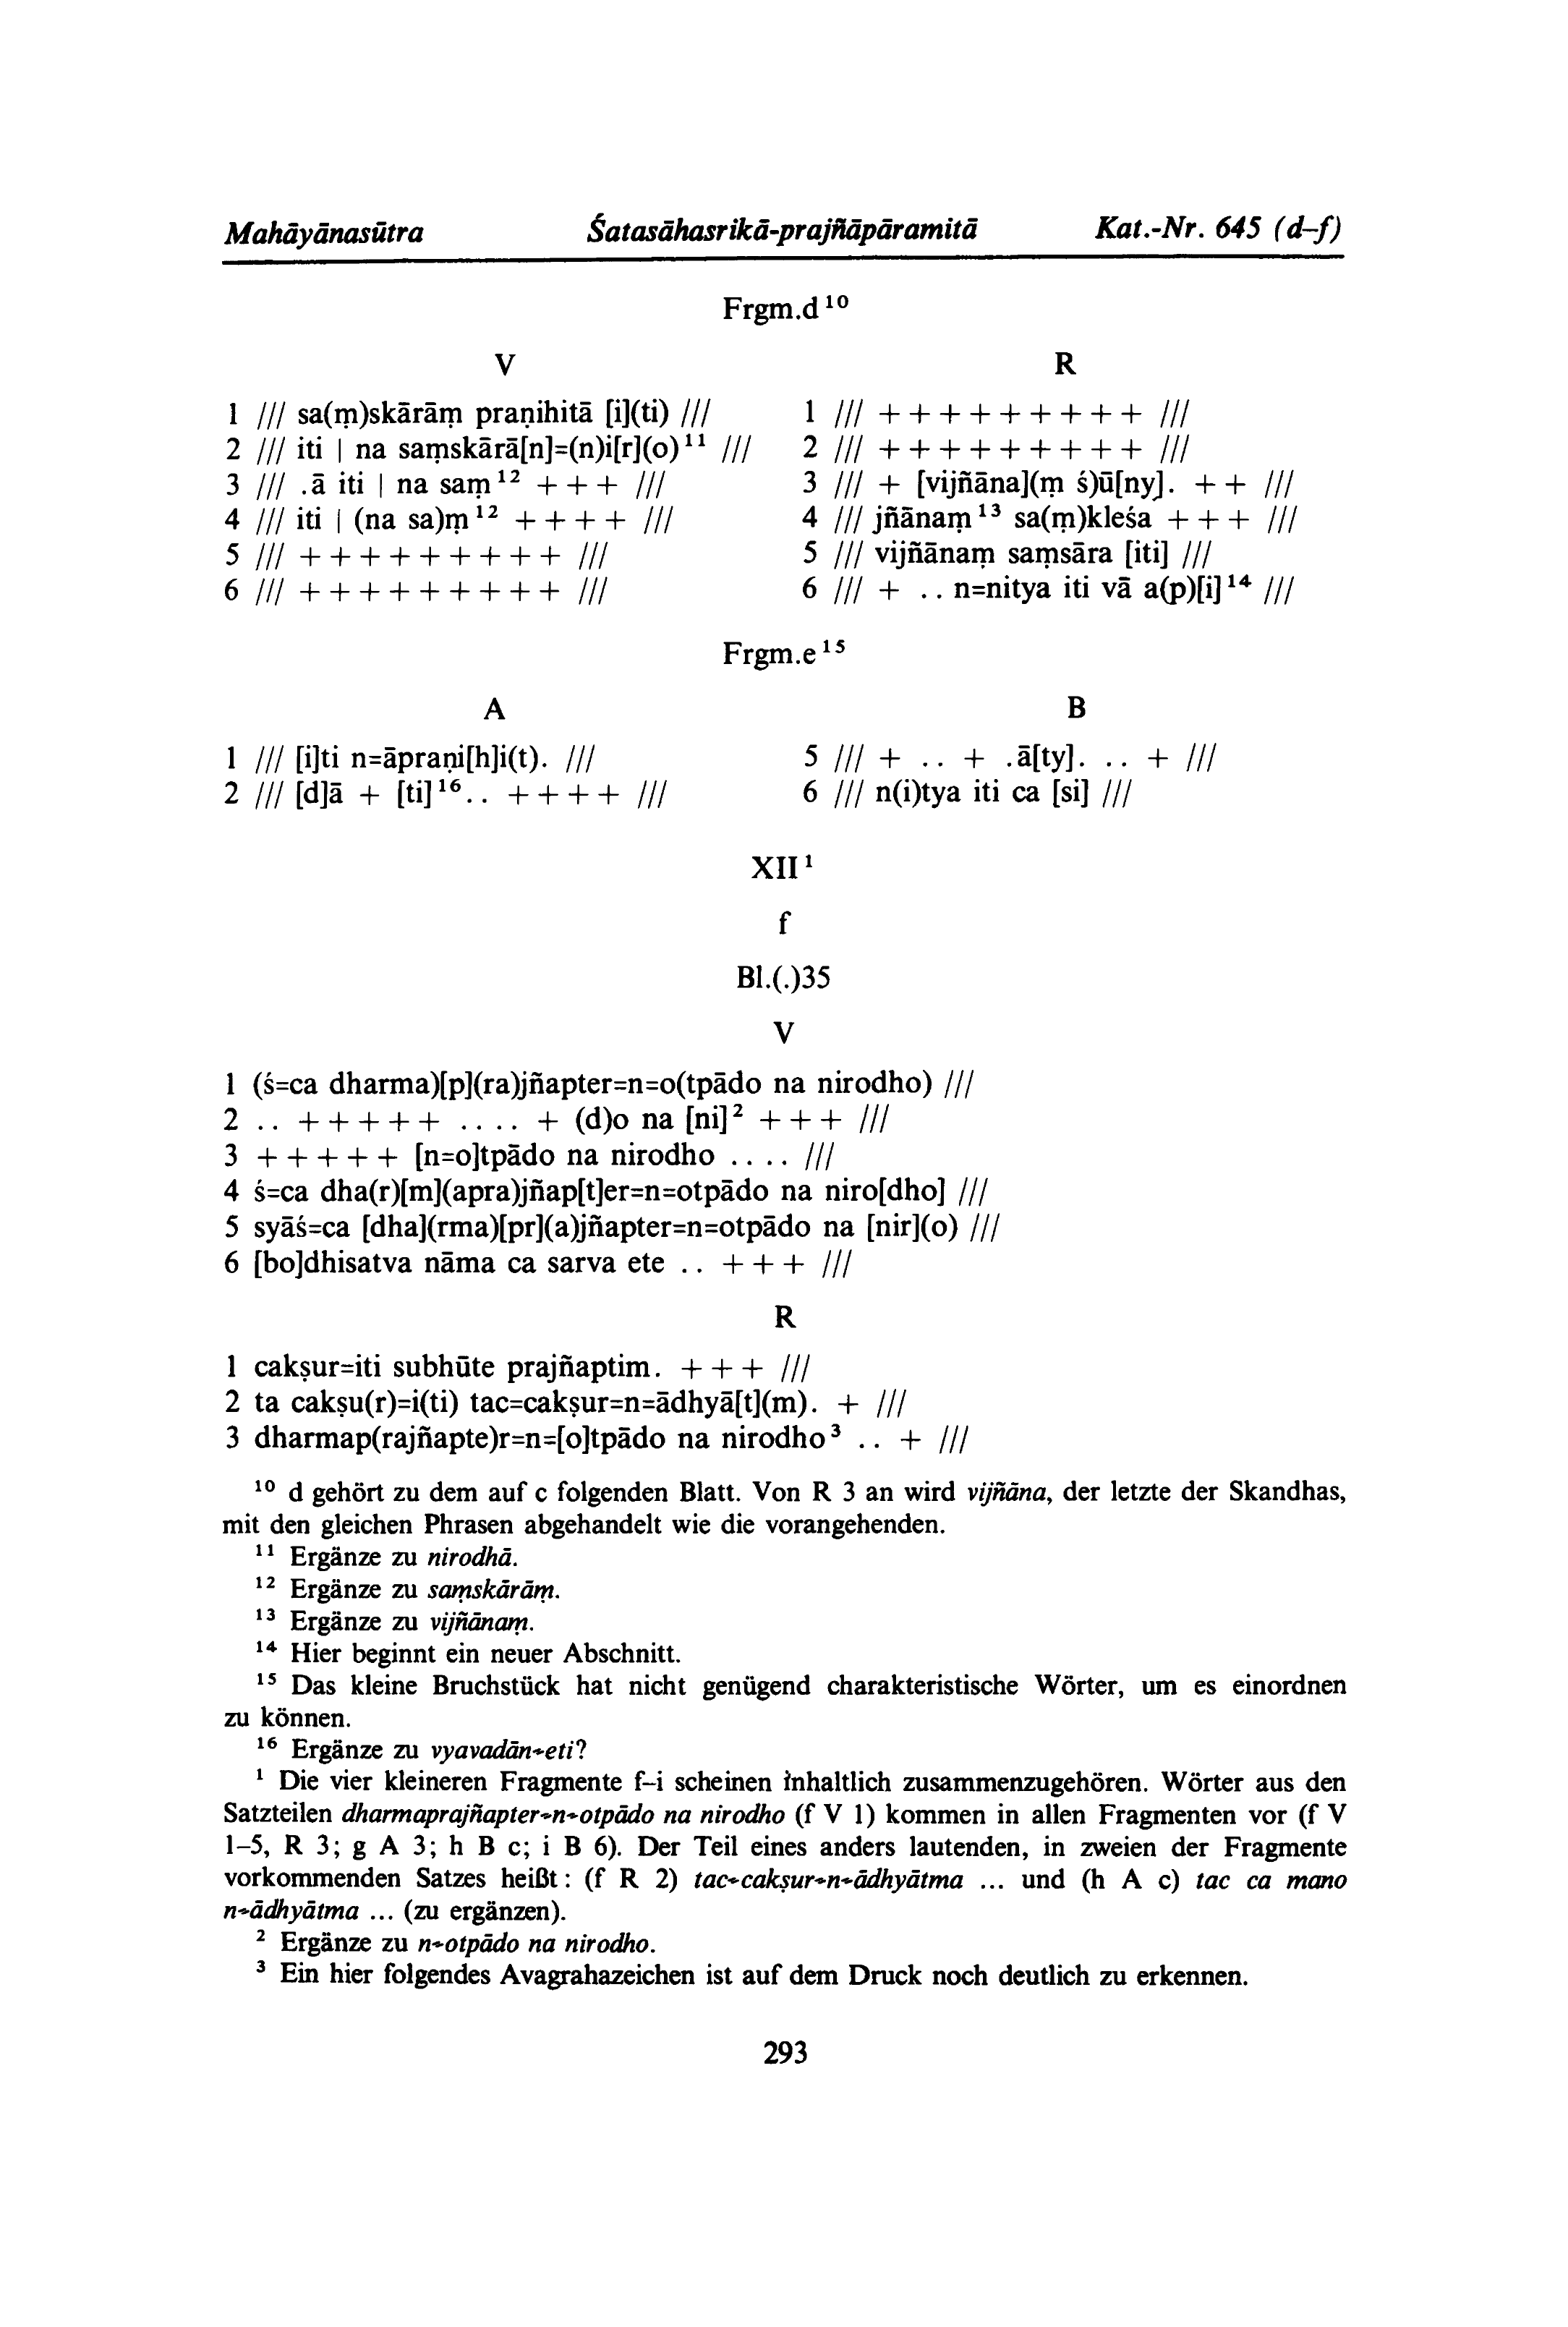 Mahāyānasūtra Śatasāhasrikā-prajñāpāramitā Kat.-Nr. 645 (d–f)
Frgm.d ¹⁰
V
1 /// sa(ṃ)skārāṃ praṇihitā [i](ti) ///
2 /// iti | na saṃskārā[n]=(n)i[r](o)¹¹ ///
3 /// .ā iti | na saṃ¹² + + + ///
4 /// iti | (na sa)ṃ¹² + + + + ///
5 /// + + + + + + + + + ///
6 /// + + + + + + + + + ///
R
1 /// + + + + + + + + + ///
2 /// + + + + + + + + + ///
3 /// + [vijñāna](ṃ ś)ū[ny]. + + ///
4 /// jñānaṃ¹³ sa(ṃ)kleśa + + + ///
5 /// vijñānaṃ saṃsāra [iti] ///
6 /// + .. n=nitya iti vā a(p)[i]¹⁴ ///
Frgm.e ¹⁵
A
1 /// [i]ti n=āpraṇi[h]i(t). ///
2 /// [d]ā + [ti]¹⁶.. + + + + ///
B
5 /// + .. + .ā[ty]. .. + ///
6 /// n(i)tya iti ca [si] ///
XII ¹
f
Bl.(.)35
V
1 (ś=ca dharma)[p](ra)jñapter=n=o(tpādo na nirodho) ///
2 .. + + + + + .... + (d)o na [ni]² + + + ///
3 + + + + + [n=o]tpādo na nirodho .... ///
4 ś=ca dha(r)[m](apra)jñap[t]er=n=otpādo na niro[dho] ///
5 syāś=ca [dha](rma)[pr](a)jñapter=n=otpādo na [nir](o) ///
6 [bo]dhisatva nāma ca sarva ete .. + + + ///
R
1 cakṣur=iti subhūte prajñaptim. + + + ///
2 ta cakṣu(r)=i(ti) tac=cakṣur=n=ādhyā[t](m). + ///
3 dharmap(rajñapte)r=n=[o]tpādo na nirodho³ .. + ///
¹⁰ d gehört zu dem auf c folgenden Blatt. Von R 3 an wird vijñāna, der letzte der Skandhas,
mit den gleichen Phrasen abgehandelt wie die vorangehenden.
¹¹ Ergänze zu nirodhā.
¹² Ergänze zu saṃskārāṃ.
¹³ Ergänze zu vijñānaṃ.
¹⁴ Hier beginnt ein neuer Abschnitt.
¹⁵ Das kleine Bruchstück hat nicht genügend charakteristische Wörter, um es einordnen
zu können.
¹⁶ Ergänze zu vyavadān=eti?
¹ Die vier kleineren Fragmente f–i scheinen inhaltlich zusammenzugehören. Wörter aus den
Satzteilen dharmaprajñapter=n=otpādo na nirodho (f V 1) kommen in allen Fragmenten vor (f V
1–5, R 3; g A 3; h B c; i B 6). Der Teil eines anders lautenden, in zweien der Fragmente
vorkommenden Satzes heißt: (f R 2) tac=cakṣur=n=ādhyātma ... und (h A c) tac ca mano
n=ādhyātma ... (zu ergänzen).
² Ergänze zu n=otpādo na nirodho.
³ Ein hier folgendes Avagrahazeichen ist auf dem Druck noch deutlich zu erkennen.
293